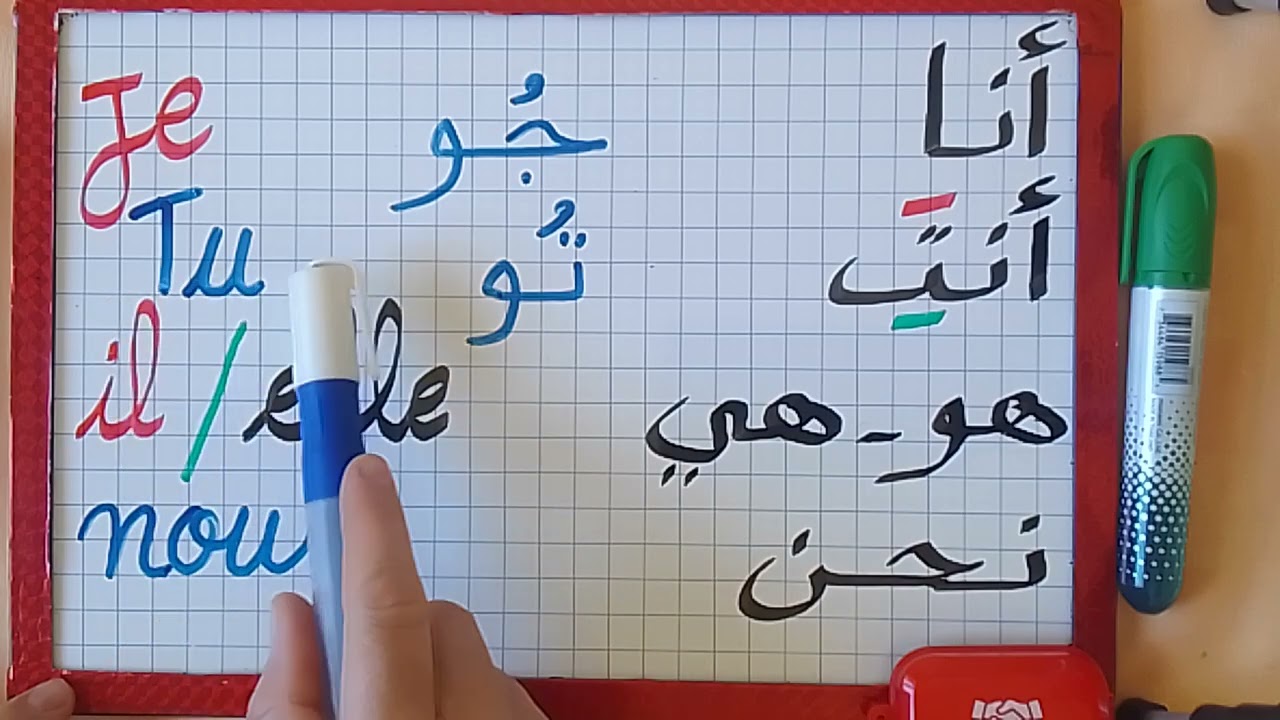 Je جُو أنا
Tu تُو أنتَِ
il / elle هو - هي
nou نحن